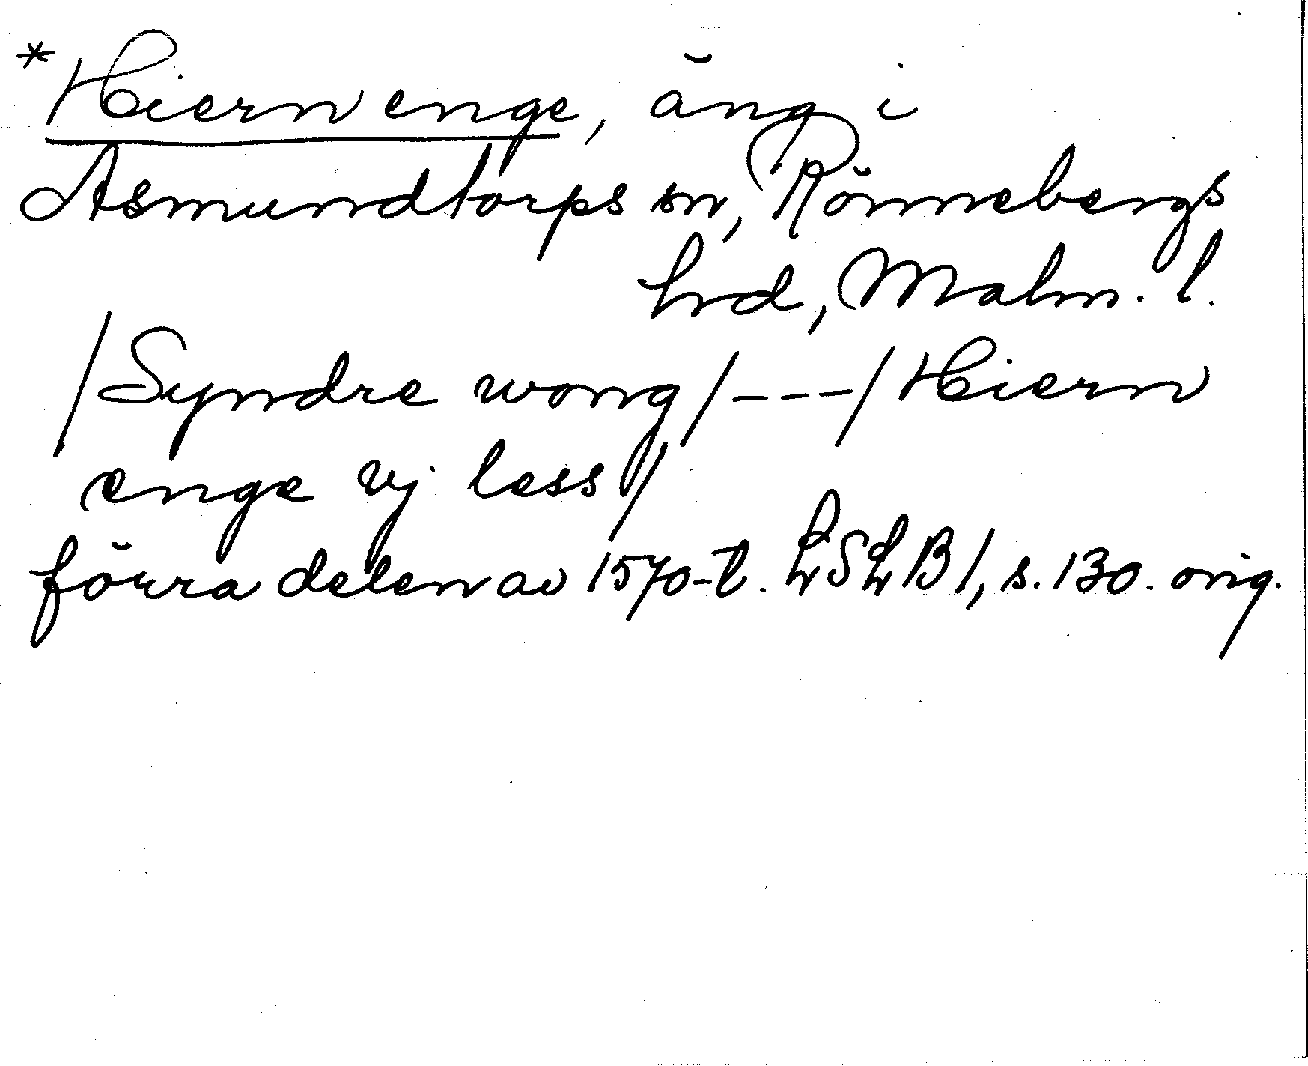 *Hiern enge, äng i
Asmundtorps sn, Rönnebergs
hrd, Malm. l.
/Syndre wong/---/Hiern
enge vj less/
förra delen av 1570-t. LSLB1, s. 130. orig.